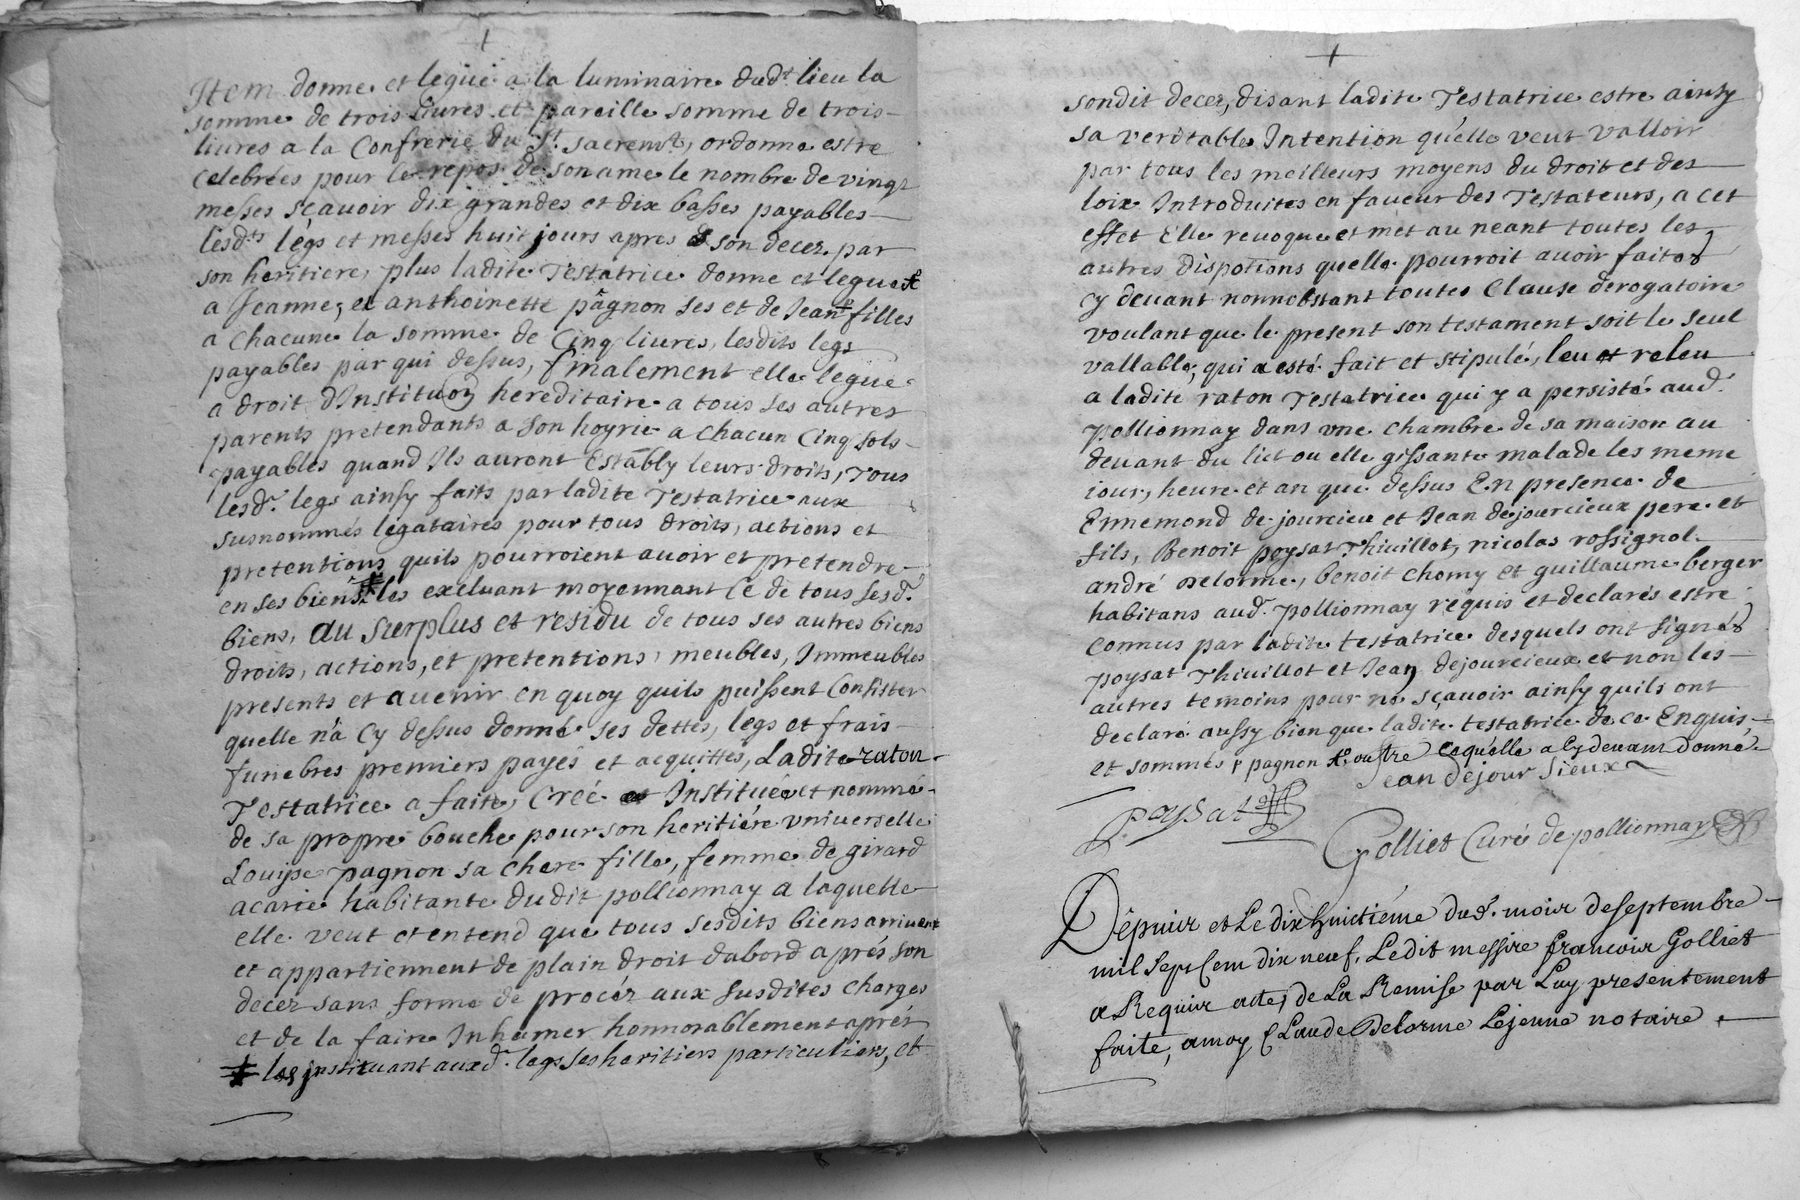 Item donne et legue a la luminaire dudt lieu la
somme de trois livres et pareille somme de trois
livres a la Confrerie du St. sacremt, ordonne estre
celebrées pour le repos de son ame le nombre de vingt
messes sçavoir dix grandes et dix basses payables
lesdts légs et messes huit jours apres son decez par
son heritiere, plus ladite Testatrice donne et legue
a Jeanne, et anthoinette pagnon ses et de Jean filles
a chacune la somme de Cinq livres, lesdits legs
payables par qui dessus, finalement elle legue
a droit d'Instituon hereditaire a tous ses autres
parents pretendants a son hoyrie a chacun Cinq sols
payables quand Ils auront Establÿ leurs droits, Tous
lesd. legs ainsy faits par ladite Testatrice aux
susnommés légataires pour tous droits, actions et
pretentions quils pourroient avoir et pretendre
en ses biens # les excluant moyennant Ce de tous sesd.
biens, au surplus et residu de tous ses autres biens
droits, actions, et pretentions, meubles, Immeubles
presents et avenir en quoy quils puissent Consister
quelle n'a Cy dessus donné ses dettes, legs et frais
funebres premiers payés et acquittés, Ladite raton
Testatrice a faite, Creé et Instituée et nommé
de sa propre bouche pour son heritiére vniverselle
Louise pagnon sa chere fille, femme de girard
acarie habitante dudit pollionnay a laquelle
elle veut et entend que tous sesdits biens arrivent
et appartiennent de plain droit dabord aprés son
decez sans forme de procéz aux susdites charges
et de la faire Inhumer honnorablement aprés
# les jnstituant auxd. legs ses heritiers particuliers, et
sondit decez, disant ladite Testatrice estre ainsy
sa veritable Intention qu'elle veut valloir
par tous les meilleurs moyens du droit et des
loix Introduites en faveur des Testateurs, a cet
effet Elle revoque et met au neant toutes les
autres dispotions quelle pourroit avoir faites
cy devant nonnobstant toutes Clause derogatoire
voulant que le present son testament soit le seul
vallable, qui a esté fait et stipulé, leu et releu
a ladite raton Testatrice qui y a persisté aud.
pollionnay dans vne chambre de sa maison au
devant du lict ou elle gissante malade les meme
iour, heure et an que dessus En presence de
Ennemond de jourcieu et Jean dejourcieux pere et
fils, Benoit poysat Thivillot, nicolas rossignol
andré delorme, benoit chomy et guillaume berger
habitans aud. pollionnay requis et declarés estre
connus par ladite testatrice desquels ont signés
poysat Thivillot et Jean dejourcieux et non les
autres temoins pour ne sçavoir ainsy quils ont
declaré aussy bien que ladite testatrice de ce Enquis,
et sommés # pagnon #. outre Cequ'elle a Cy devant donné
Jean dejour sieux
poysat
Golliet Curé de pollionnay
Depuis et Le dix huictiéme dud. mois de septembre
mil sept Cent dix neuf, Ledit messire francois Golliet
a Requis acte, de La Remise par Luy presentement
faite, a moy Claude Delorme Lejeune notaire